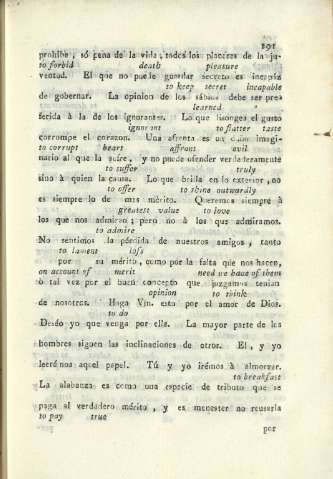 191
prohibe, só pena de la vida, todos los placeres de la ju-
to forbid death pleasure
ventud. El que no puede guardar secreto es inepta
to keep secret incapable
de gobernar. La opinion de los sabios debe ser pres
learned
ferida à la de los ignorantes. Lo que lisongea el gusto
ignorant to flatter taste
corrompe el corazon. Una afrenta es un imagi-
to corrupt heart affront evil
nario al que la sufre, y no puede ofender verdaderamente
to suffer truly
sino à quien la causa. Lo que brilla en lo exterior, no
to offer to shine outwardly
es siempre lo de mas mérito. Queremos siempre à
greatest value to love
los que nos admiran; pero no à los que admiramos.
to admire
No sentimos la pérdida de nuestros amigos, tanto
to lament loss
por su mérito, como por la falta que nos hacen,
on account of merit need we have of them
ò tal vez por el buen concepto que juzgamos tenian
opinion to think
de nosotros. Haga Vm. esto por el amor de Dios.
to do
Deséo yo que venga por ella. La mayor parte de los
hombres siguen las inclinaciones de otros. El, y yo
leerémos aquel papel. Tú y yo irémos à almorzar.
to breakfast
La alabanza es como una especie de tributo que se
paga al verdadero mérito, y es menester no reusarla
to pay true
por